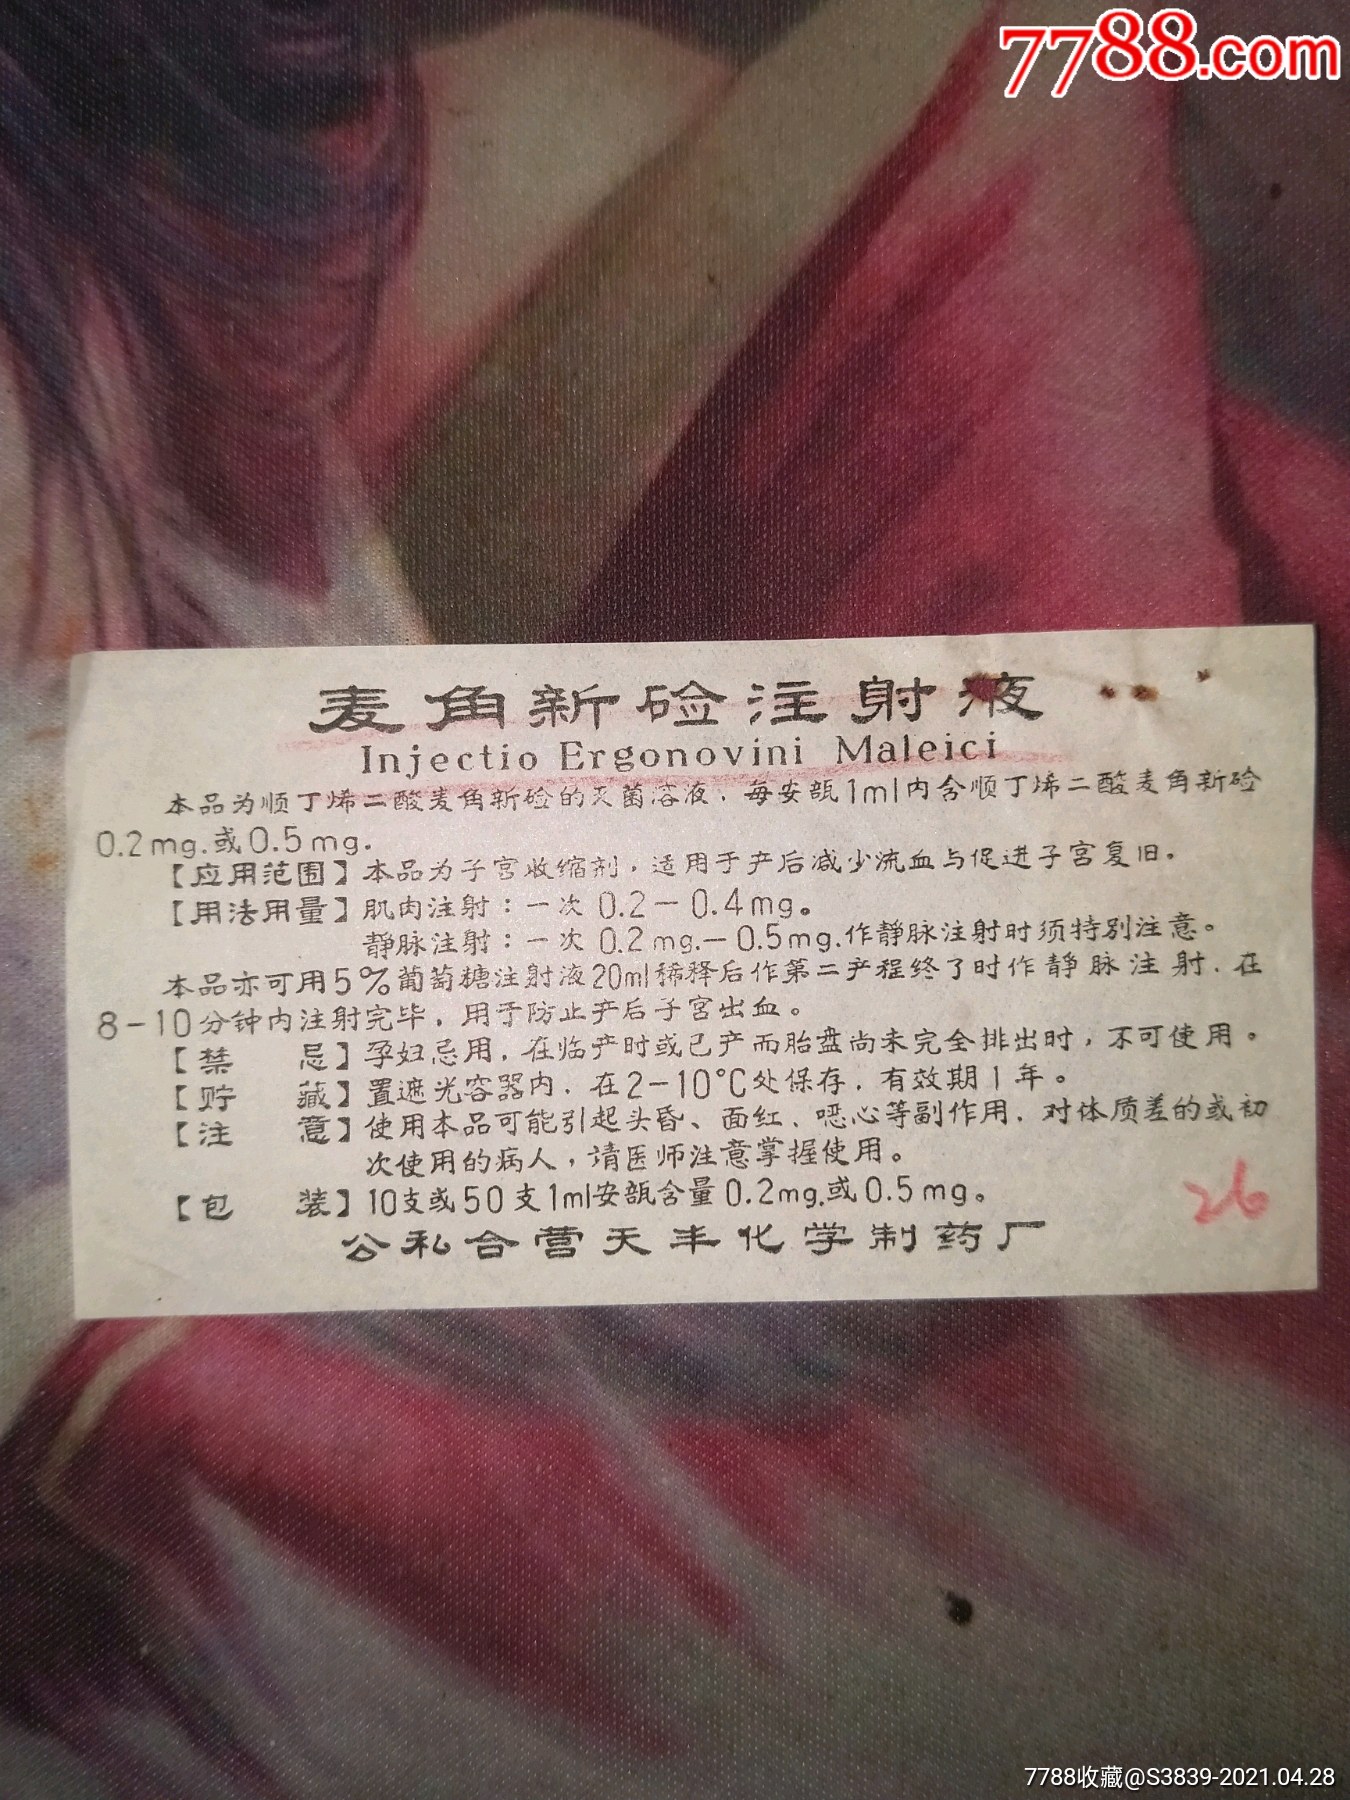 7788.com
麦角新硷注射液
Injectio Ergonovini Maleici
本品为顺丁烯二酸麦角新硷的灭菌溶液．每安瓿1ml内含顺丁烯二酸麦角新硷
0.2mg.或0.5mg.
【应用范围】本品为子宫收缩剂，适用于产后减少流血与促进子宫复旧。
【用法用量】肌肉注射：一次 0.2－0.4mg。
静脉注射：一次 0.2mg.－0.5mg.作静脉注射时须特别注意。
本品亦可用5%葡萄糖注射液20ml稀释后作第二产程终了时作静脉注射．在
8－10分钟内注射完毕，用于防止产后子宫出血。
【禁 忌】孕妇忌用，在临产时或已产而胎盘尚未完全排出时，不可使用。
【贮 藏】置遮光容器内．在2－10°C处保存．有效期1年。
【注 意】使用本品可能引起头昏、面红、噁心等副作用．对体质差的或初
次使用的病人，请医师注意掌握使用。
【包 装】10支或50支1ml安瓿含量0.2mg.或0.5mg。
26
公私合营天丰化学制药厂
7788收藏@S3839-2021.04.28